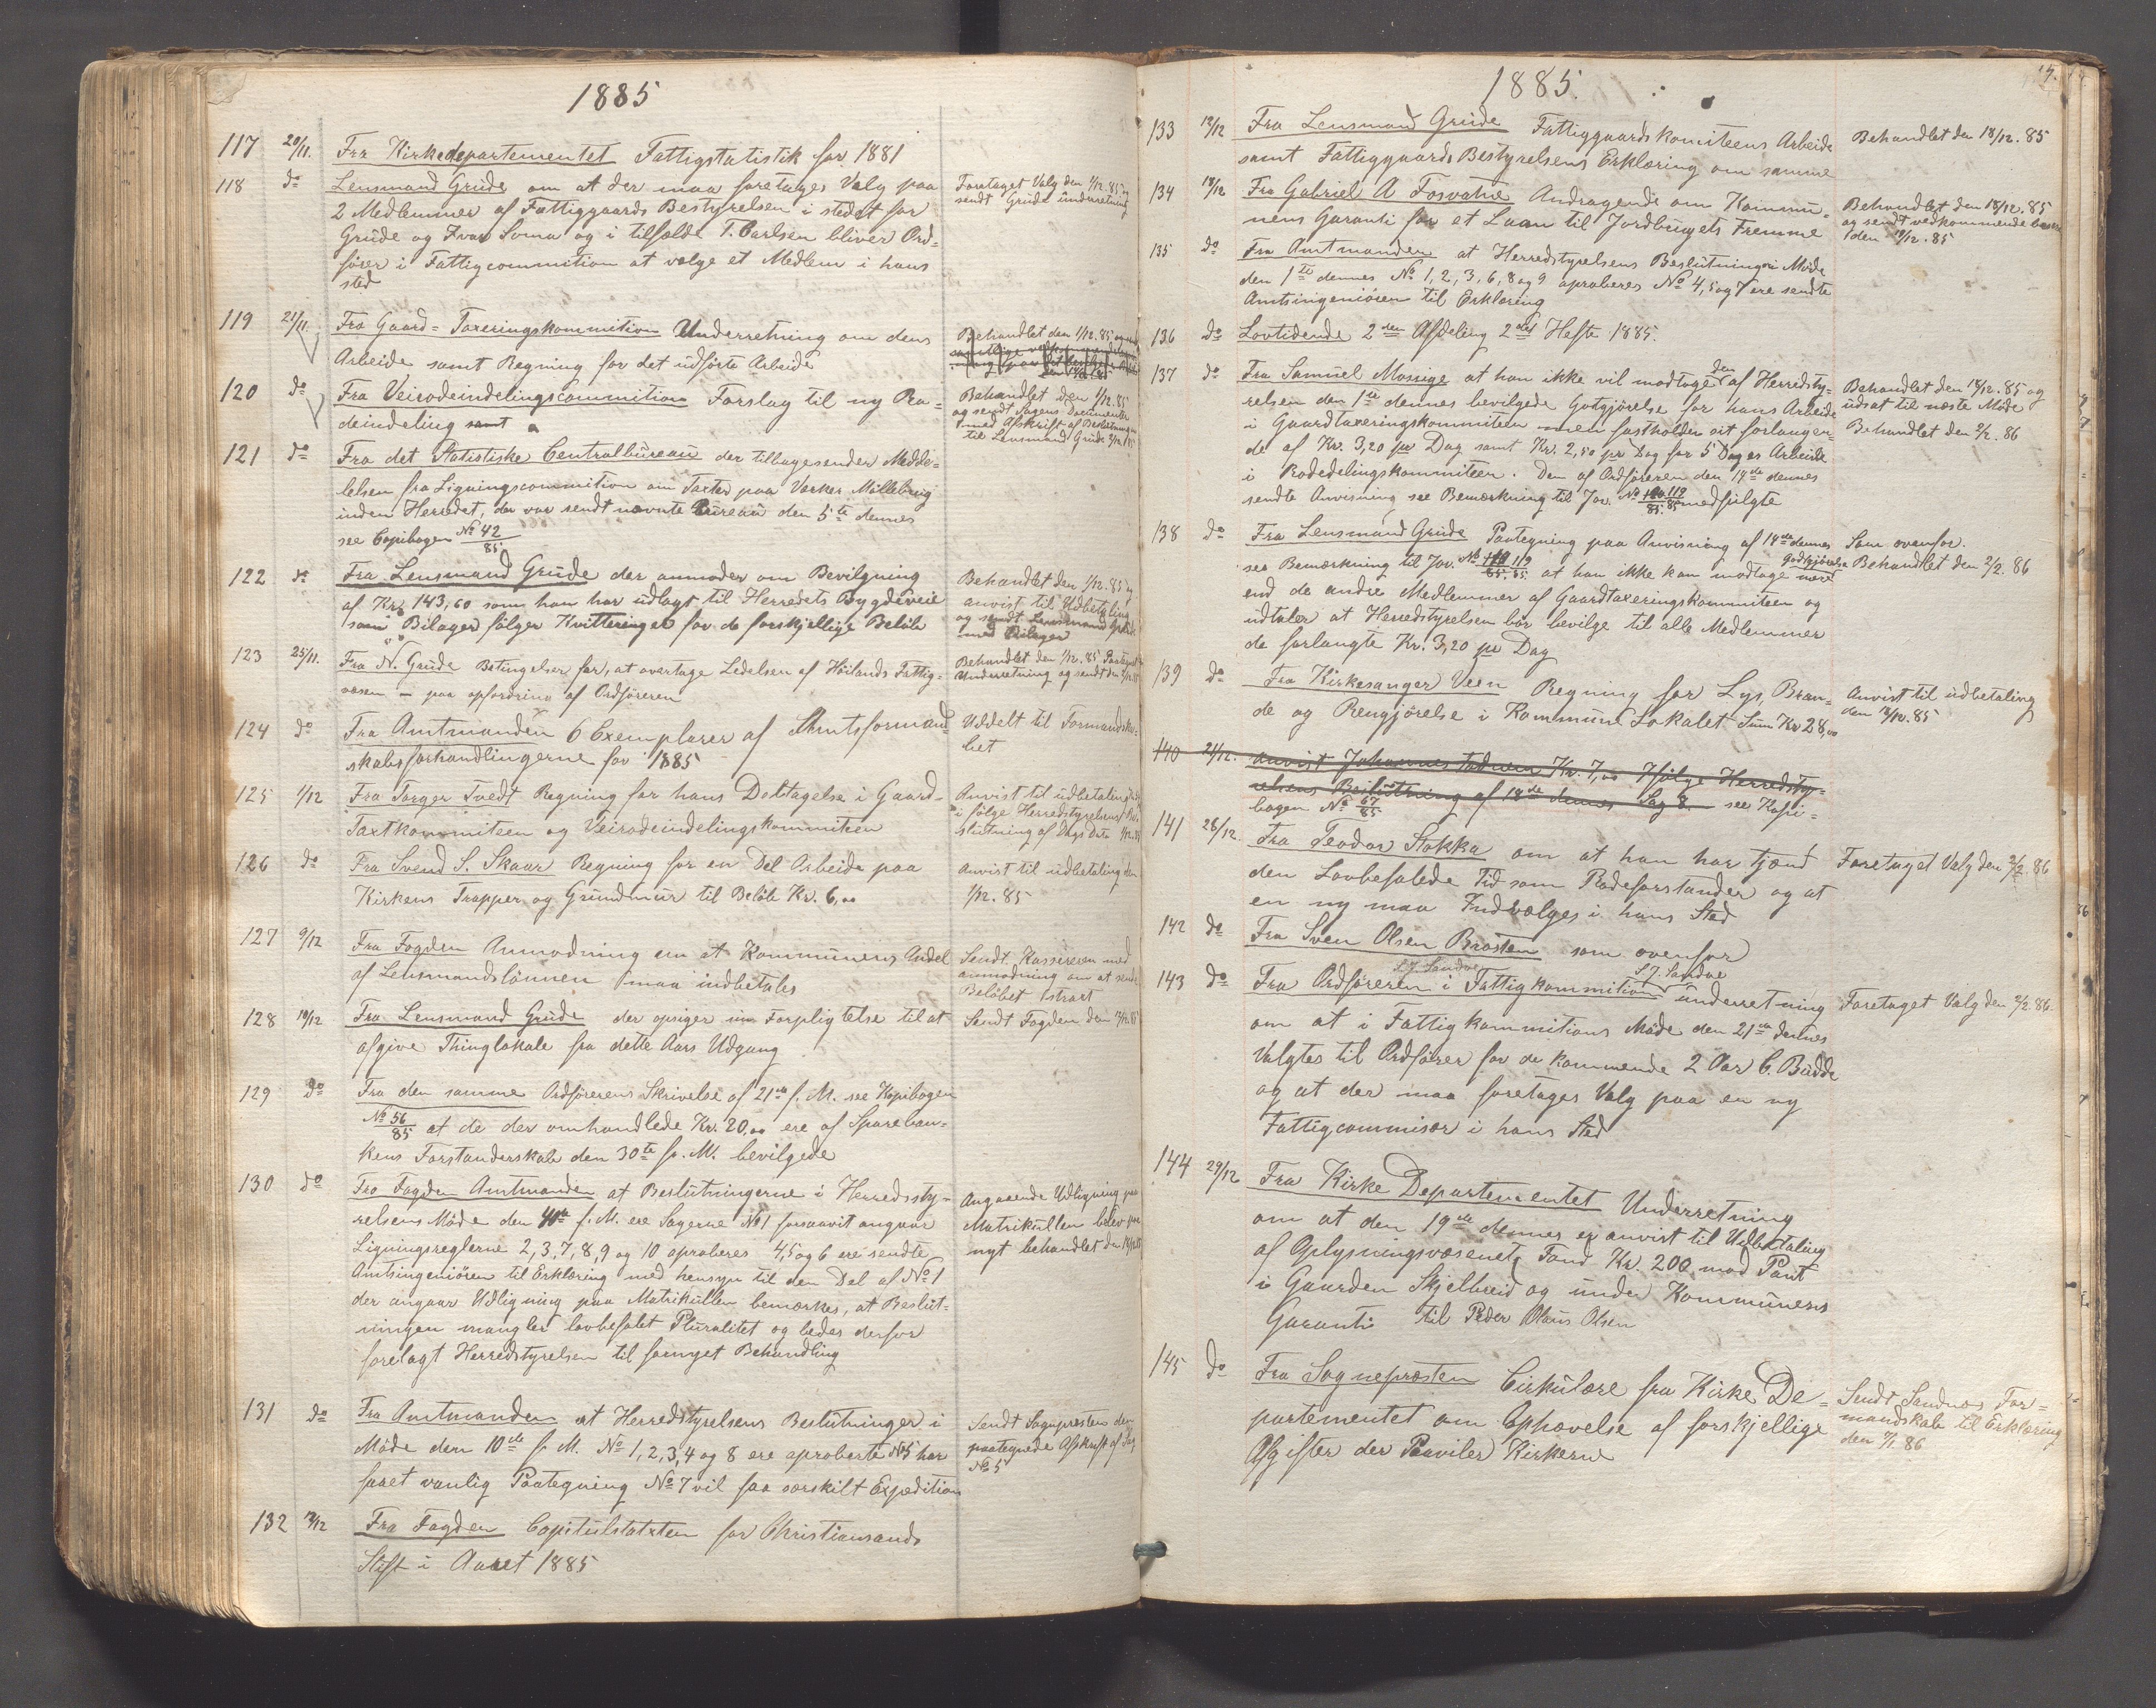 1885
117 20/11. Fra Kirkedepartementet Fattigstatistik for 1881
118 do Lensmand Grude om at der maa foretages Valg paa
2 Medlemmer af Fattiggaards Bestyrelsen i stedet for
Grude og Ivar Soma og i tilfælde T. Carlsen bliver Ord=
fører i Fattigcommition at vælge et Medlem i hans
sted
Foretaget Valg den 1/12.85 og
sendt Grude underretning
119 21/11. Fra Gaard=Taxeringskommition Underretning om dens
Arbeide samt Regning for det udførte Arbeide
Behandlet den 1/12.85
120 do Fra Veirodeindelingscommition Forslag til ny Ro=
deindeling samt
Behandlet den 1/12.85
og sendt Sagens Documenter
med Afskrift af Beslutningen
til Lensmand Grude
121 do Fra det Statistiske Centralbureau der tilbagesender Medde=
lelsen fra Ligningscommition om Taxter paa Værker Møllebrug
inden Herredet, der var sendt nævnte Bureau den 5te dennes
see Copibogen No 42/85.
122 do Fra Lensmand Grude der anmoder om Bevilgning
af Kr. 143,60 som han har udlagt til Herredets Bygdeveie
som Bilager følger Kvitteringer for de forskjellige Beløb
Behandlet den 1/12.85 og
anvist til Udbetaling
og sendt Lensmand Grude
med Bilager
123 25/11. Fra N. Grude Betingelser for, at overtage Ledelsen af Høilands Fattig=
væsen - paa opfordring af Ordføreren
Behandlet den 1/12.85
Underretning og sendt den
124 do Fra Amtmanden 6 Exemplarer af Amtsformand=
skabsforhandlingerne for 1885
Uddelt til Formandska=
bet
125 1/12 Fra Torger Tvedt Regning for hans Deltagelse i Gaard=
Taxtkommiteen og Veirodeindelingskommiteen
Anvist til udbetaling
i følge Herredstyrelsens Be=
slutning af Dags Dato 1/12.85
126 do Fra Svend S. Skaar Regning for en Del Arbeide paa
Kirkens Trapper og Grundmur til Beløb Kr. 6,00
Anvist til udbetaling den
1/12.85
127 9/12 Fra Fogden Anmodning om at Kommunens Andel
af Lensmandslønnen maa indbetales
Sendt Kassereren med
anmodning om at sende
Beløbet strax
128 10/12 Fra Lensmand Grude der opsiger sin Forpligtelse til at
afgive Thinglokale fra dette Aars Udgang
Sendt Fogden den
129 do Fra den samme Ordførerens Skrivelse af 21de f. M. see Kopibogen
No 56/85 at de der omhandlede Kr. 20,00 ere af Spareban=
kens Forstanderskab den 30te f. M. bevilgede
130 do Fra Fogden Amtmanden at Beslutningerne i Herredssty=
relsens Møde den f. M. ere Sagerne No 1 forsaavit angaar
Ligningsreglerne 2,3,7,8,9 og 10 aproberes 4,5 og 6 ere sendte
Amtsingeniøren til Erklæring med hensyn til den Del af No 1
der angaar Udligning paa Matrikullen bemærkes, at Beslut=
ningen mangler lovbefalet Pluralitet og bedes derfor
forelagt Herredstyrelsen til fornyet Behandling
Angaaende Udligning paa
Matrikullen blev paa
nyt behandlet den 18/12.85
131 do Fra Amtmanden at Herredstyrelsens Beslutninger i
Møde den 10de f. M. No 1, 2, 3, 4 og 8 ere aproberte No 5 har
faaet vanlig Paategning No 7 vil faa særskilt Expedition
Sendt Sognepresten den
paategnede Afskrift af Sag
No 5
132 12/12 Fra Fogden Capitulstaxten for Christiansands
Stift i Aaret 1885
1885.
133 12/12 Fra Lensmand Grude Fattiggaards komiteens Arbeide
samt Fattiggaards Bestyrelsens Erklæring om samme
Behandlet den 18/12.85
134 18/12 Fra Gabriel A Fosvatne Andragende om Kommu=
nens Garanti for et Laan til Jordbrugets Fremme
Behandlet den 18/12.85
og sendt vedkommende
den 19/12.85
135 do Fra Amtmanden at Herredstyrelsens Beslutninger i Møde
den 1te dennes No 1, 2, 3, 6, 8 og 9 aproberes No 4, 5 og 7 ere sendte
Amtsingeniøren til Erklæring
136 do Lovtidende 2den Afdeling 2det Hefte 1885.
137 do Fra Samuel Mossige at han ikke vil modtage den af Herredsty=
relsen den 1te dennes bevilgede Godtgjørelse for hans Arbeide
i Gaardtaxeringskommiteen men fastholder sit forlangen=
de af Kr. 3,20 pr Dag samt Kr. 2,50 pr Dag for 5 Dages Arbeide
i Rodedelingskommiteen. Den af Ordføreren den 14de dennes
sendte Anvisning see Bemærkning til Jor. No 119/85 medfulgte
Behandlet den 18/12.85 og
udsat til næste Møde
Behandlet den 2/2.86
138 do Fra Lensmand Grude Paategning paa Anvisning af 14de dennes
see Bemærkning til Jor. No 119/85. at han ikke kan modtage mere Godtgjørelse
end de andre Medlemmer af Gaardtaxeringskommiteen og
udtaler at Herredstyrelsen bør bevilge til alle Medlemmer
de forlangte Kr. 3,20 pr Dag
Som ovenfor.
Behandlet den 2/2.86
139 do Fra Kirkesanger Veen Regning for Lys, Bræn=
de og Rengjørelse i Kommune Lokalet Sum Kr 28,00
Anvist til udbetaling
den 18/12.85
140 21/12. anvist Johannes Kr. 7,00 Ifølge Herredsty=
relsens Beslutning af 18de dennes Sag 8. see Kopi=
bogen No 67/85
141 28/12. Fra Teodor Stokka om at han har tjent
den Lovbefalede Tid som Rodeforstander og at
en ny maa Indvælges i hans Sted
Foretaget Valg den 2/2.86
142 do Fra Sven Olsen Brasten som ovenfor
143 do Fra Ordføreren i Fattigkommition S J. Sandve underretning
om at i Fattigkommitions Møde den 21de dennes
Valgtes til Ordfører for de kommende 2 Aar C. Budde
og at der maa foretages Valg paa en ny
Fattigcommisær i hans Sted
Foretaget Valg den 2/2.86
144 29/12 Fra Kirke Departementet Underretning
om at den 19de dennes er anvist til Udbetaling
af Oplysningsvæsenets Fond Kr. 200 mod Pant
i Gaarden Skjelbreid og under Kommunens
Garanti til Peder Olaus Olsen
145 do Fra Sognepræsten Cirkulære fra Kirke De=
partementet om Ophævelse af forskjellige
Afgifter der Paaviler Kirkerne
Sendt Sandnes For=
mandskab til Erklæring
den 7/1 86